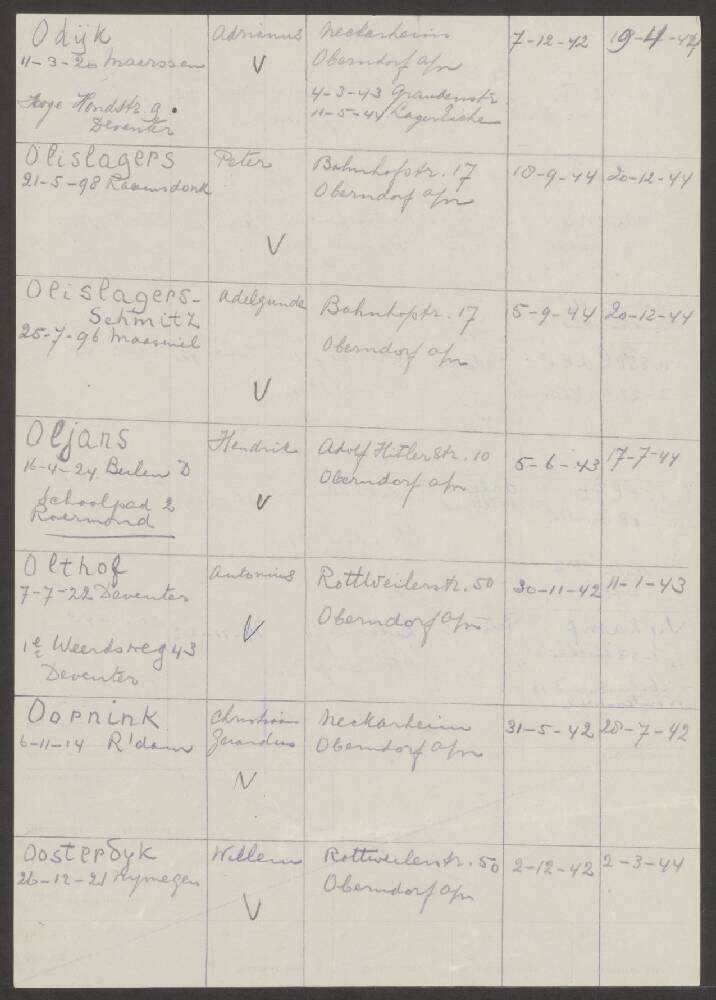 Odijk Adrianus Neckarheim 7-12-42 19-4-44
11-3-20 Maerssen V Oberndorf a/n
4-3-43 Graudenstr.
Hoge Hondstr. 9. 11-5-44 Lagerliche
Deventer
Olislagers Peter Bahnhofstr. 17 18-9-44 20-12-44
21-5-98 Raamsdonk Oberndorf a/n
V
Olislagers- Adelgunde Bahnhofstr. 17 5-9-44 20-12-44
Schmitz
25-7-96 Maasniel Oberndorf a/n
V
Oljans Hendrik Adolf Hitlerstr. 10 5-6-43 17-7-44
16-4-24 Beilen D Oberndorf a/n
Schoolpad 2 V
Roermond
Olthof Antonius Rottweilerstr. 50 30-11-42 11-1-43
7-7-22 Deventer Oberndorf a/n
V
1e Weerdsweg 43
Deventer
Oornink Christiaan Neckarheim 31-5-42 28-7-42
6-11-14 R'dam Gerardus Oberndorf a/n
V
Oosterdyk Willem Rottweilerstr. 50 2-12-42 2-3-44
26-12-21 Nymegen Oberndorf a/n
V